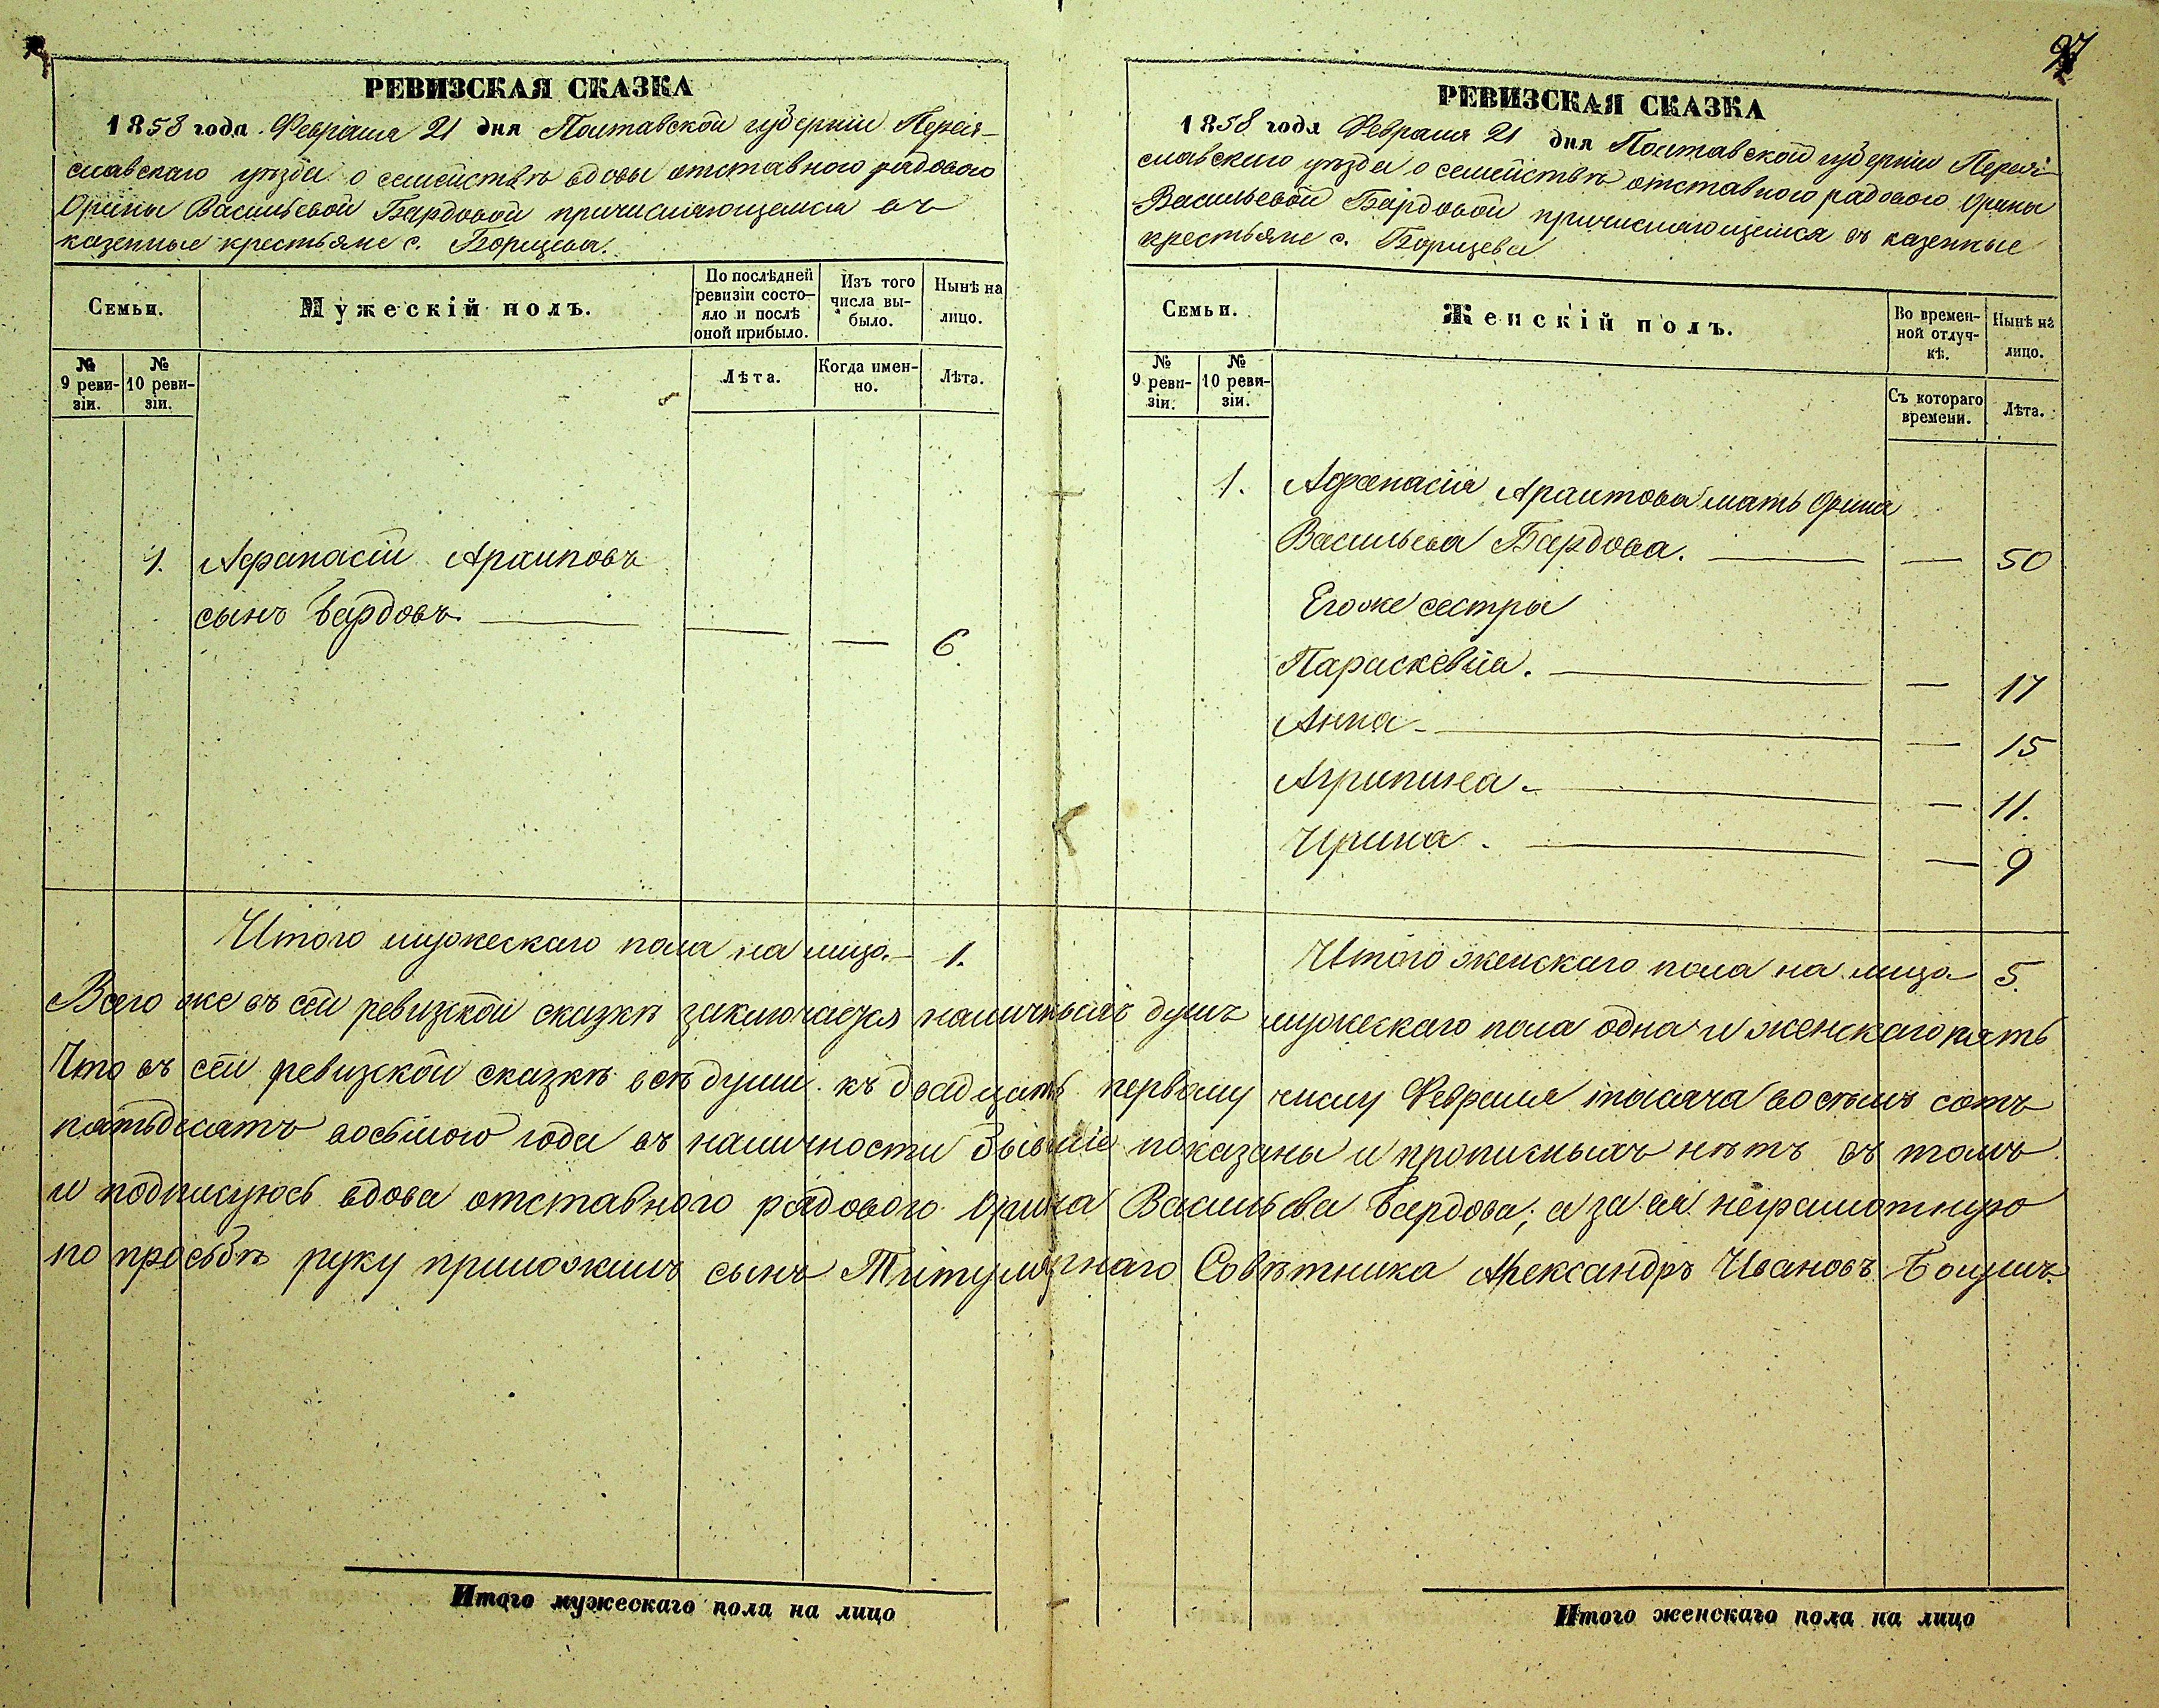 97
РЕВИЗСКАЯ СКАЗКА
1858 года Февраля 21 дня Полтавской губерніи Перея-
славскаго уѣзда о семействѣ вдовы отставного рядового
Орины Васильевой Бардовой причисляющемся въ
казенные крестьяне с. Борщева.
Семьи.
Мужескій полъ.
По послѣдней
ревизіи состо-
яло и послѣ
оной прибыло.
Изъ того
числа вы-
было.
Нынѣ на
лицо.
№
9 реви-
зіи.
№
10 реви-
зіи.
Лѣта.
Когда имен-
но.
Лѣта.
1. Афанасій Архиповъ
сынъ Бардовъ. — — — 6
Итого мужескаго пола на лицо. — 1.
РЕВИЗСКАЯ СКАЗКА
1858 года Февраля 21 дня Полтавской губерніи Перея-
славскаго уѣзда о семействѣ отставного рядового Орины
Васильевой Бардовой причисляющемся въ казенные
крестьяне с. Борщева
Семьи.
Женскій полъ.
Во времен-
ной отлуч-
кѣ.
Нынѣ на
лицо.
№
9 реви-
зіи.
№
10 реви-
зіи.
Съ котораго
времени.
Лѣта.
1. Афанасія Архипова мать Орина
Васильева Бардова. — — 50
Его же сестры
Параскевія. — — 17
Анна — — 15
Агрипина. — — 11.
Ирина. — — 9
Итого женскаго пола на лицо — 5.
Всего же въ сей ревизской сказкѣ заключается наличныхъ душъ мужескаго пола одна и женскаго пять
Что въ сей ревизской сказкѣ всѣ души къ двадцать первому числу Февраля тысяча восемь сотъ
пятьдесятъ восьмого года въ наличности бывшіе показаны и прописныхъ нѣтъ въ томъ
и подписуюсь вдова отставного рядового Орина Васильева Бардова; а за ея неграмотную
по просьбѣ руку приложилъ сынъ Титулярнаго Совѣтника Александръ Ивановъ
Итого мужескаго пола на лицо
Итого женскаго пола на лицо